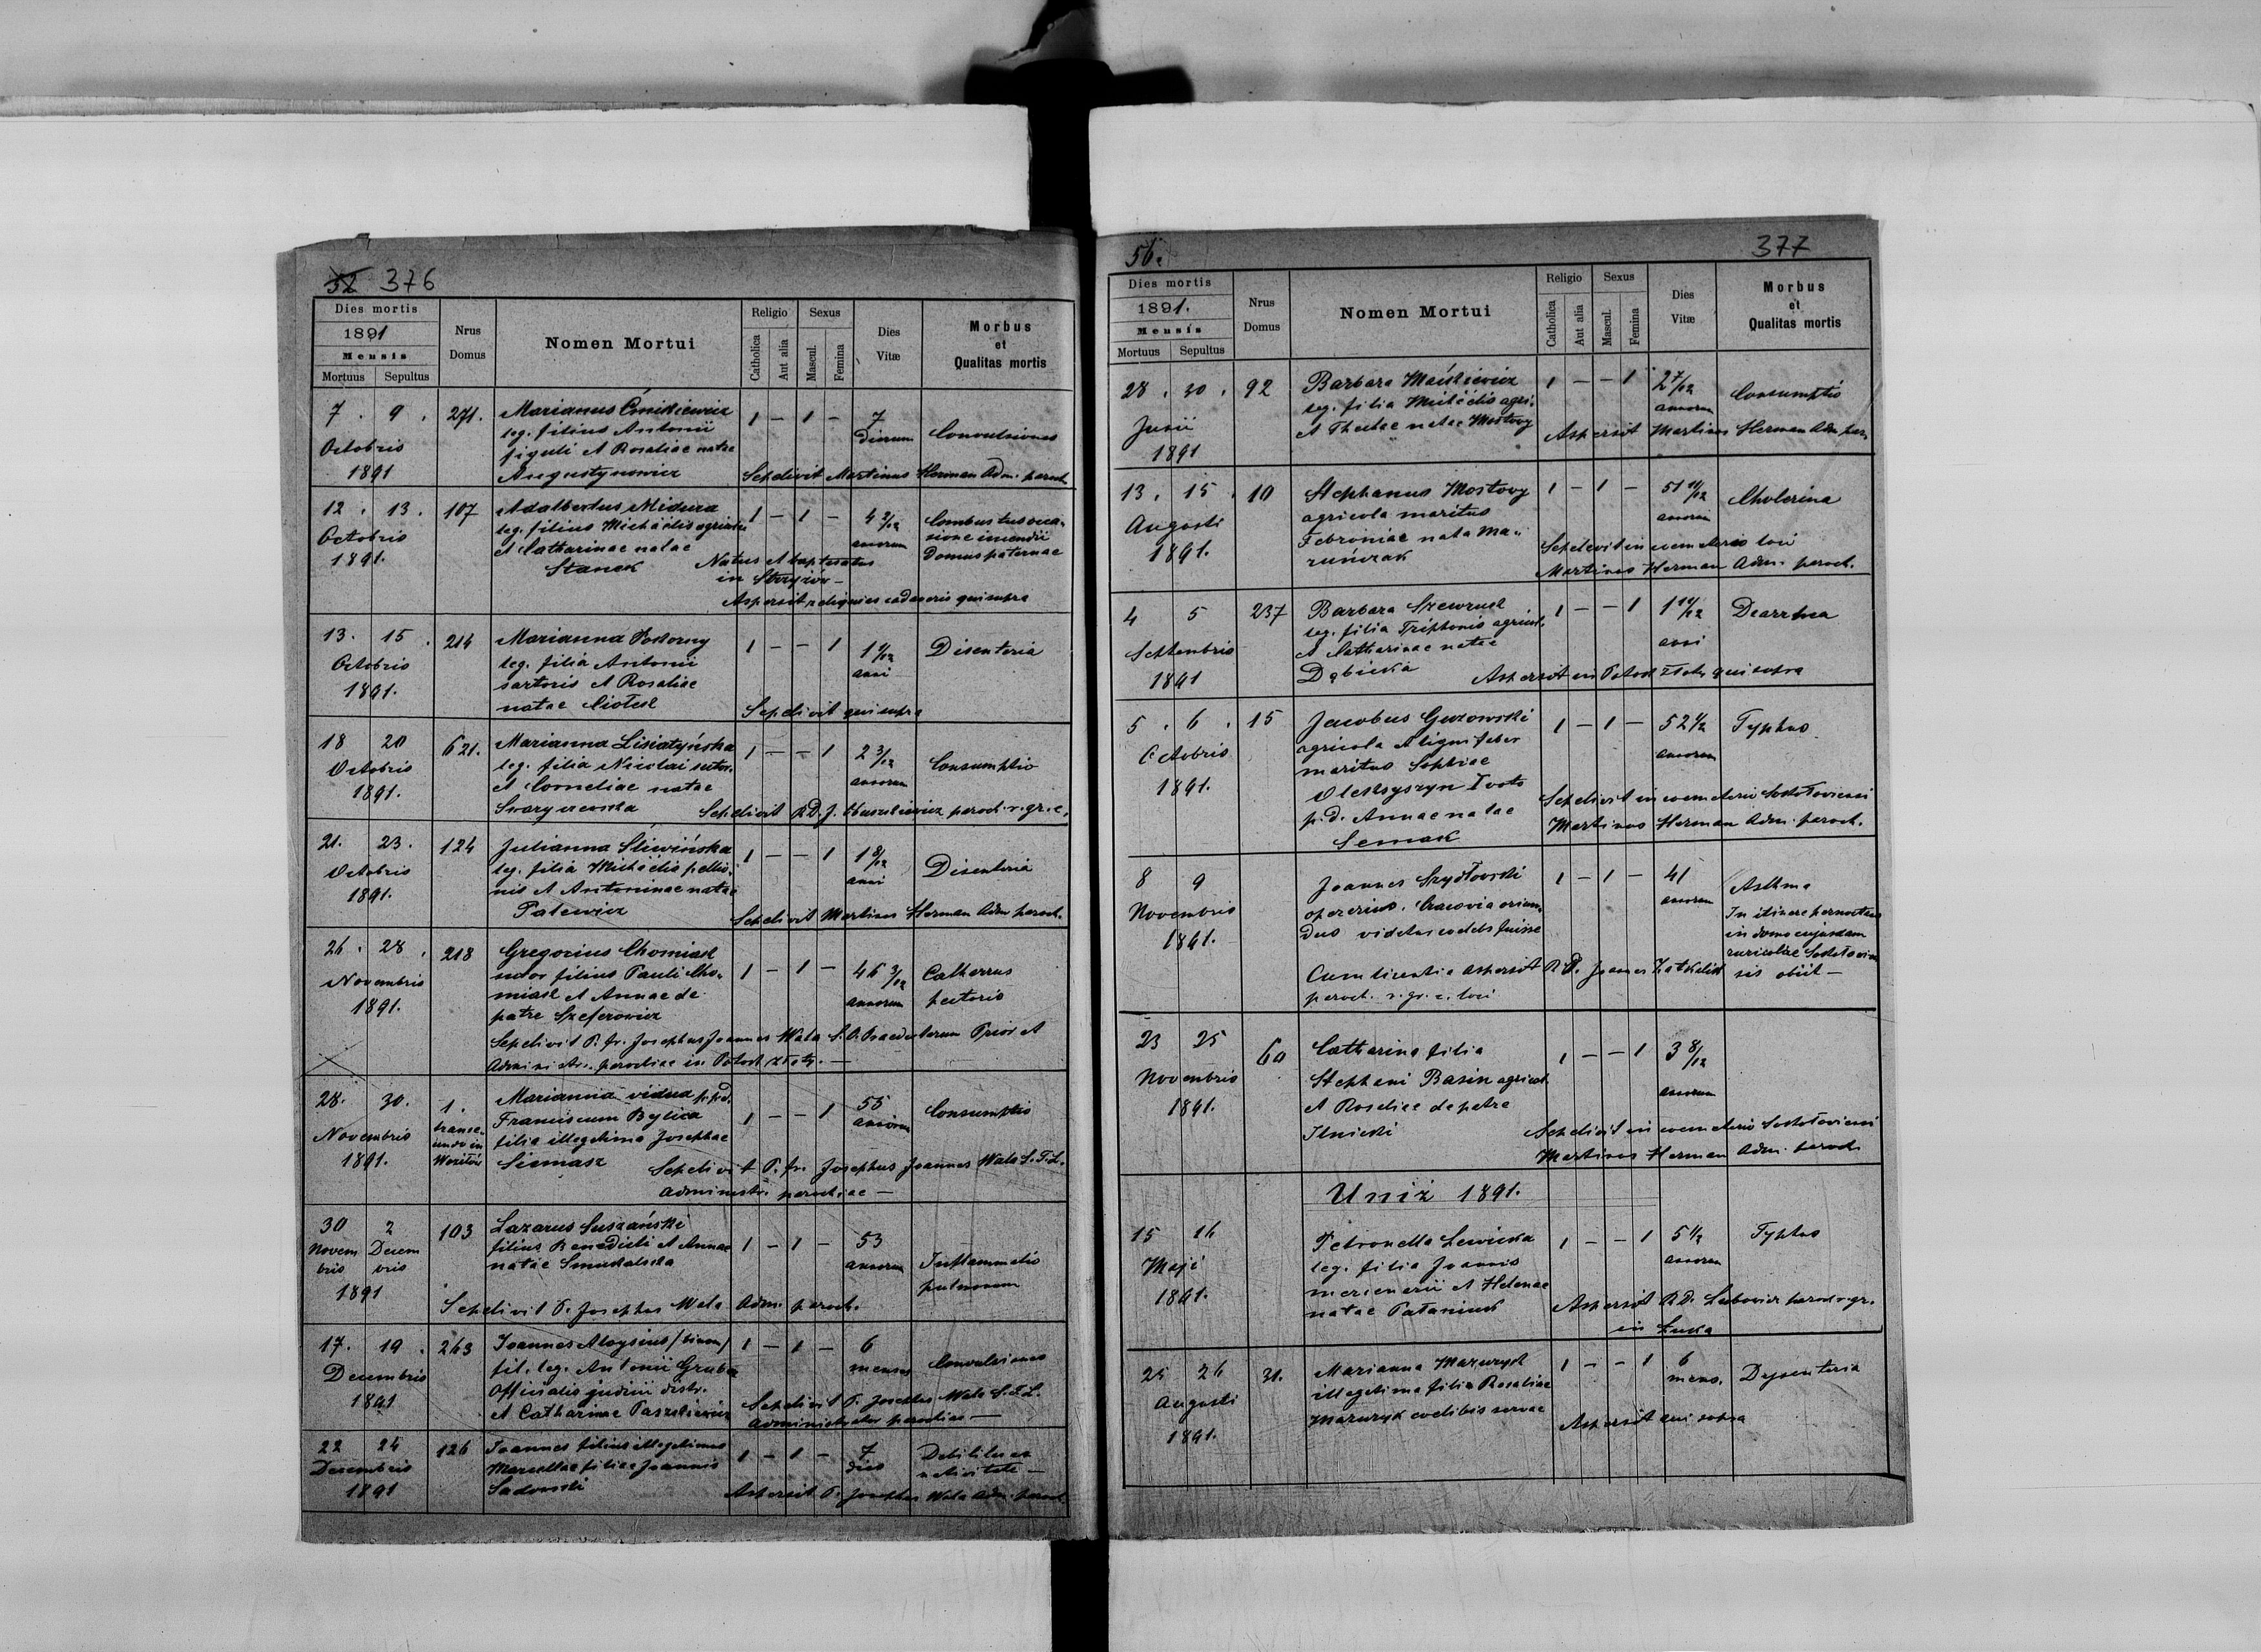 52 376
Dies mortis
1891
Mensis
Mortuus Sepultus
Nrus
Domus
Nomen Mortui
Religio
Catholica
Aut alia
Sexus
Mascul.
Femina
Dies
Vitæ
Morbus
et
Qualitas mortis
7 . 9 . 271. Marianus 1 - 1 - 7
Octobris leg. filius Antonii Dierum Convulsiones
figuli et Rosaliae natae
1891 Augustynowicz Sepelivit Martinus Herman Adm. paroch.
12 . 13 . 107 Adalbertus Midura 1 - 1 - 4 2/12 Combustus occa-
Octobris leg. filius Michaëlis agricolae annorum sione incendii
1891. et Catharinae natae Domus paternae
Stanek Natus et baptisatus
in
Aspersit reliquies cadaveris qui supra
13. 15 . 214 Marianna Pokorny 1 - - 1 Disenteria
Octobris leg. filia Antonii anni
1891. sartoris et Rosaliae
natae Sepelivit qui supra
18 20 621. Marianna Lisiatyńska 1 - - 1 2 3/12
Octobris leg. filia Nicolai sutor. annorum Consumptio
1891. et Corneliae natae
Sepelivit R.D.J. paroch. r. gr. c.
21. 23. 124 Julianna Śliwińska 1 - - 1 1 8/12
Octobris leg. filia Michaëlis pellio- anni Disenteria
1891. nis et Antoninae natae
Patewicz Sepelivit Martinus Herman Adm. paroch.
26 . 28 . 218 Gregorius Chomiak 1 - 1 - 46 3/12 Catharrus
Novembris sutor filius Pauli Cho- annorum pectoris
1891. miak et Annae de
patre Szeferowicz
Sepelivit P. fr. Josephus Joannes Wala S.O. Praedicatorum Prior et
Administr. parochiae in Potok złoty. —
28. 30. 1. Marianna vidua p. pd. 1 - - 1 55 Consumptio
Novembris Franciscum Bylica annorum
1891. filia illegitima Josephae
Siemasz Sepelivit P. fr. Josephus Joannes Wala S.T.L.
Administr. parochiae —
30 2 103 Lazarus Suszański 1 - 1 - 53
Novem Decem filius Benedicti et Annae annorum Inflammatio
bris bris natae pulmonum
1891
Sepelivit P. Josephus Wala Adm. paroch.
17. 19 . 263 Joannes Aloysius /binom/ 1 - 1 - 6
Decembris fil. leg. Antonii Gruba menses Convulsiones
1891 Officialis judicii distr. Sepelivit P. Josephus Wala S.T.L.
et Catharinae Paszkiewicz Administrator parochiae —
22 24 126 Joannes filius illegitimus 1 - 1 - 7 Debilitas a
Decembris Marcellae filiae Joannis dies nativitate —
1891 Sadowski Aspersit P. Josephus Wala Adm. paroch.
56. 377
Dies mortis
1891.
Mensis
Mortuus Sepultus
Nrus
Domus
Nomen Mortui
Religio
Catholica
Aut alia
Sexus
Mascul.
Femina
Dies
Vitæ
Morbus
et
Qualitas mortis
28 . 30 . 92 Barbara 1 - - 1 2 7/12 Consumptio
leg. filia Michaëlis agri. annorum
1891 et Theclae natae Mostowy Aspersit Martinus Herman Adm. par.
13. 15 . 10 Stephanus Mostowy 1 - 1 - 51 11/12 Cholerina
Augusti agricola maritus annorum
1891. Febroniae nata Ma-
ruńczak Sepelivit in coemeterio loci
Martinus Herman Adm. paroch.
4 5 237 Barbara Szewczuk 1 - - 1 1 11/12 Diarrhea
Septembris leg. filia Triphonis agricol. anni
1891 et Catharinae natae
Dębicka Aspersit in Potok złoty qui supra
5 . 6 . 15 Jacobus Guzowski 1 - 1 - 52 1/2 Typhus
Octobris agricola et lignifaber annorum
1891. maritus Sophiae
Oleksyszyn I voto Sepelivit in coemeterio Sokołoviensi
p.d. Annae natae Martinus Herman Adm. paroch.
Semak
8 9 Joannes Szydłowski 1 - 1 - 41 Asthma
Novembris operarius, Cracovia oriun- annorum In itinere pernoctans
1891. dus videtur caelebs fuisse in domo cujusdam
ruricolae Sokołovien
Cum licentia aspersit R.D. Joannes sis obiit —
paroch. r. gr. c. loci
23 25 60 Catharina filia 1 - - 1 3 8/12
Novembris Stephani Basin agricol. annorum
1891. et Rosaliae de patre
Ilnicki Sepelivit in coemeterio Sokołoviensi
Martinus Herman Adm. paroch.
Uniż 1891.
15 16 Petronella Lewicka 1 - - 1 5 1/2 Typhus
Maji leg. filia Joannis annorum
1891. mercenarii et Helenae
natae Aspersit R.D. paroch. r. gr.
in Łuka
25 26 31. Marianna Mazuryk 1 - - 1 6 Dysenteria
Augusti illegitima filia Rosaliae mens.
1891. Mazuryk coelibis servae Aspersit qui supra